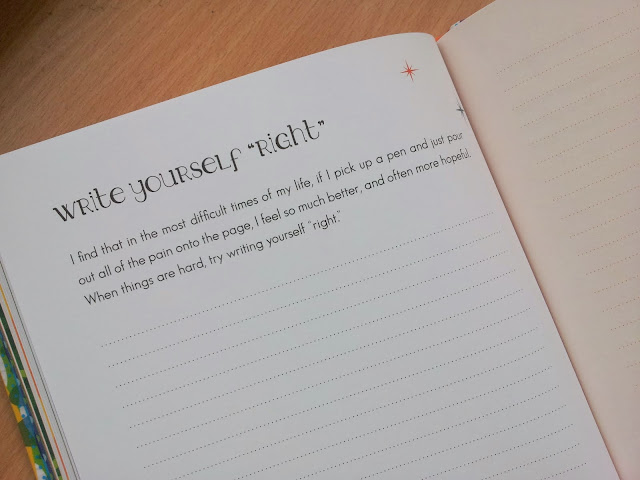 Write yourself "Right"
I find that in the most difficult times of my life, if I pick up a pen and just pour
out all of the pain onto the page, I feel so much better, and often more hopeful.
When things are hard, try writing yourself "right."